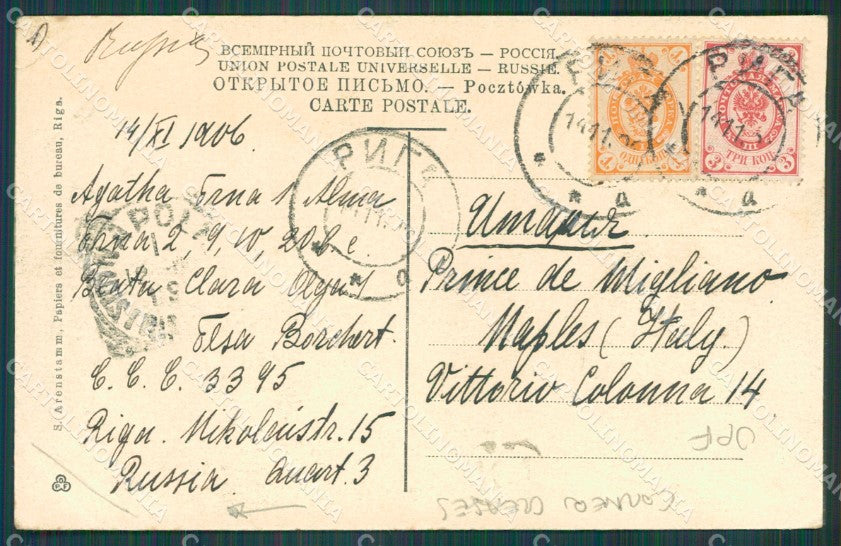 Russia
ВСЕМІРНЫЙ ПОЧТОВЫЙ СОЮЗЪ — РОССІЯ.
UNION POSTALE UNIVERSELLE — RUSSIE.
ОТКРЫТОЕ ПИСЬМО. — Pocztówka.
CARTE POSTALE.
14/XI 1906
Agatha Erna 1 Alma
Erna 2, 9, 10, 20
Beata Clara Olga
Elsa Borchert.
C. C. C. 3395
Riga. Nikolaistr. 15
Russia. Quart. 3
S. Arenstamm, Papiers et fournitures de bureau, Riga.
P.F
РИГА
РИГА
РИГА
a
a
a
1
1
ОДНА
3
3
ТРИ КОП
Италия
Prince de Migliano
Naples (Italy)
Vittorio Colonna 14.
JPF
CORNER CREASES
CARTOLINOMANIA